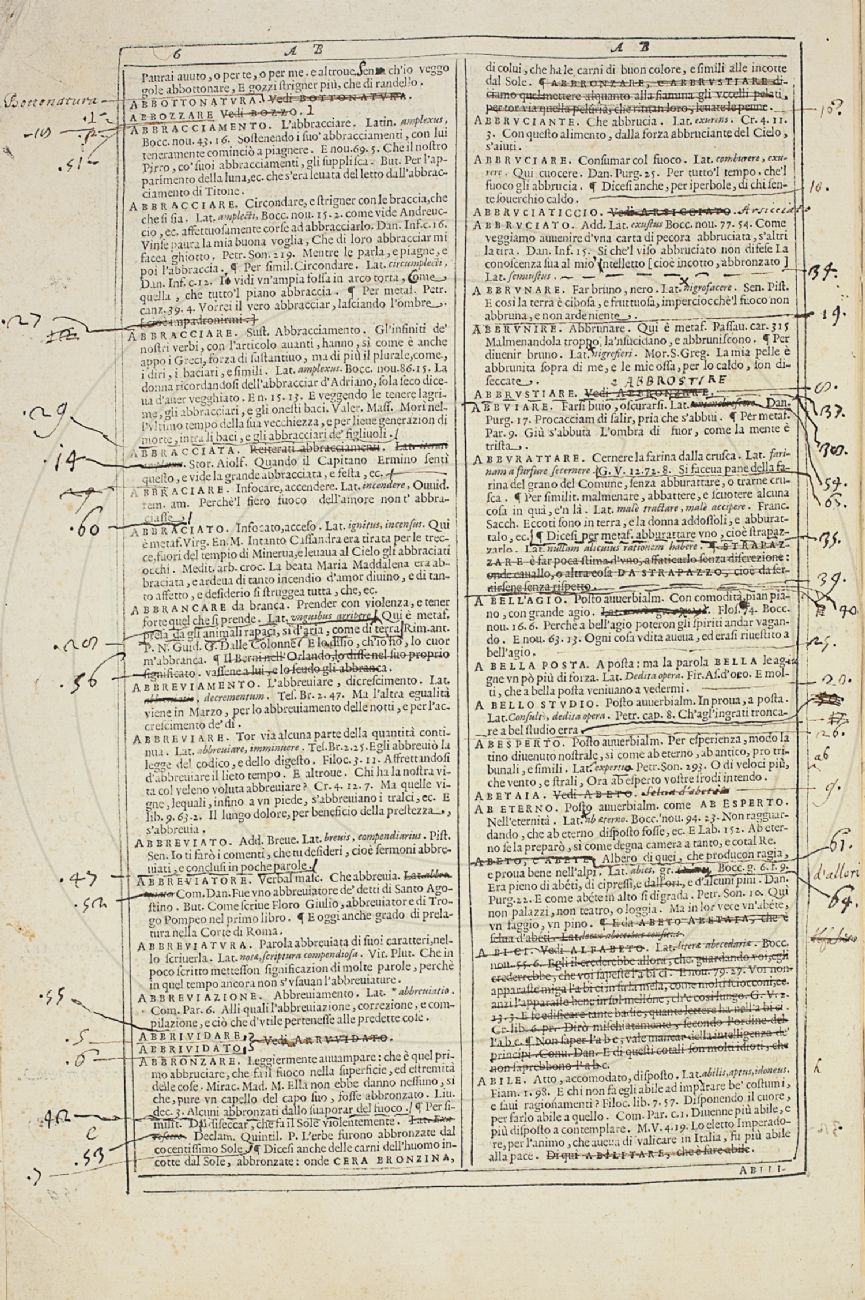 6 A B
Paurai auuto, o per te, o per me. e altroue. Senza ch'io veggo
gole abbottonare, E gozzi strigner più, che di randello.
Bottonatura
ABBOTTONATVRA. Vedi BOTTONATVRA.
ABBOZZARE Vedi BOZZO.
ABBRACCIAMENTO. L'abbracciare. Latin. amplexus,
Bocc. nou. 43. 16. Sostenendo i suo' abbracciamenti, con lui
teneramente cominciò a piagnere. E nou. 69. 5. Che il nostro
Pirro, co' suoi abbracciamenti, gli supplisca. But. Per l'ap-
parimento della luna, ec. che s'era leuata del letto dall'abbrac-
ciamento di Titone.
ABBRACCIARE. Circondare, e strigner con le braccia, che
che si sia. Lat. amplecti, Bocc. nou. 15. 2. come vide Andreuc-
cio, ec. affettuosamente corse ad abbracciarlo. Dan. Inf. c. 16.
Vinse paura la mia buona voglia, Che di loro abbracciar mi
facea ghiotto. Petr. Son. 219. Mentre le parla, e piagne, e
poi l'abbraccia. ¶ Per simil. Circondare. Lat. circumplecti,
Dan. Inf. c. 12. Io vidi vn'ampia fossa in arco torta, Come
quella, che tutto'l piano abbraccia. ¶ Per metaf. Petr.
canz. 39. 4. Vorrei il vero abbracciar, lasciando l'ombre.
[cioè impadronirmi.]
ABBRACCIARE. Sust. Abbracciamento. Gl'infiniti de'
nostri verbi, con l'articolo auanti, hanno, sì come è anche
appo i Greci, forza di sustantiuo, ma di più il plurale, come,
i diri, i baciari, e simili. Lat. amplexus. Bocc. nou. 86. 15. La
donna ricordandosi dell'abbracciar d'Adriano, sola seco dice-
ua d'auer vegghiato. E n. 15. 13. E veggendo le tenere lagri-
me, gli abbracciari, e gli onesti baci. Valer. Mass. Morì nel-
l'vltimo tempo della sua vecchiezza, e per lieue generazion di
morte, intra li baci, e gli abbracciari de' figliuoli.
ABBRACCIATA. Reiterati abbracciamenti. Lat.
Stor. Aiolf. Quando il Capitano Ermino sentì
questo, e vide la grande abbracciata, e festa, ec.
ABBRACIARE. Infocare, accendere. Lat. incendere, Ouuid.
rem. am. Perchè'l fiero fuoco dell'amore non t' abbra-
ciasse.
ABBRACIATO. Infocato, acceso. Lat. ignitus, incensus. Qui
è metaf. Virg. En. M. Intanto Cassandra era tirata per le trec-
ce, fuori del tempio di Minerua, e leuaua al Cielo gli abbraciati
occhi. Medit. arb. croc. La beata Maria Maddalena era ab-
braciata, e ardeua di tanto incendio d'amor diuino, e di tan-
to affetto, e desiderio si struggea tutta, che, ec.
ABBRANCARE da branca. Prender con violenza, e tener
forte quel che si prende. Lat. vnguibus arripere. Qui è metaf.
presa da gli animali rapaci, sì d'aria, come di terra. Rim. ant.
P. N. Guid. G. Dalle Colonne. E lo sisio, ch'io ho, lo cuor
m'abbranca. ¶ Il Berni nell'Orlando, lo disse nel suo proprio
significato. vassene a lui, e lo scudo gli abbranca.
ABBREVIAMENTO. L'abbreuiare, dicrescimento. Lat.
decrementum. Tes. Br. 2. 47. Ma l'altra egualità
viene in Marzo, per lo abbreuiamento delle notti, e per l'ac-
crescimento de' dì.
ABBREVIARE. Tor via alcuna parte della quantità conti-
nua. Lat. abbreuiare, imminuere. Tes. Br. 2. 25. Egli abbreuiò la
legge del codico, e dello digesto. Filoc. 3. 11. Affrettandosi
d'abbreuiare il lieto tempo. E altroue. Chi ha la nostra vi-
ta col veleno voluta abbreuiare? Cr. 4. 12. 7. Ma quelle vi-
gne, lequali, infino a vn piede, s'abbreuiano i tralci, ec. E
lib. 9. 63. 2. Il lungo dolore, per beneficio della prestezza,
s'abbreuia.
ABBREVIATO. Add. Breue. Lat. breuis, compendiarius. Pist.
Sen. Io ti farò i comenti, che tu desideri, cioè sermoni abbre-
uiati, e conclusi in poche parole.
ABBREVIATORE. Verbal masc. Che abbreuia.
Com. Dan. Fue vno abbreuiatore de' detti di Santo Ago-
stino. But. Come scriue Floro Giulio, abbreuiatore e di Tro-
go Pompeo nel primo libro. ¶ E oggi anche grado di prela-
tura nella Corte di Roma.
ABBREVIATVRA. Parola abbreuiata di suoi caratteri, nel-
lo scriuerla. Lat. nota, scriptura compendiosa. Vit. Plut. Che in
poco scritto mettesson significazion di molte parole, perchè
in quel tempo ancora non s'vsauan l'abbreuiature.
ABBREVIAZIONE. Abbreuiamento. Lat. *abbreuiatio.
Com. Par. 6. Alli quali l'abbreuiazione, correzione, e com-
pilazione, e ciò che d'vtile pertenesse alle predette cose.
ABBRIVIDARE,
ABBRIVIDATO. Vedi ARRVVIDATO.
ABBRONZARE. Leggiermente auuampare: che è quel pri-
mo abbruciare, che fa il fuoco nella superficie, ed estremità
delle cose. Mirac. Mad. M. Ella non ebbe danno nessuno, sì
che, pure vn capello del capo suo, fosse abbronzato. Liu.
dec. 3. Alcuni abbronzati dallo suaporar del fuoco. ¶ Per si-
milit. Del diseccar, che fa il Sole violentemente.
Declam. Quintil. P. L'erbe furono abbronzate dal
cocentissimo Sole. ¶ Dicesi anche delle carni dell'huomo in-
cotte dal Sole, abbronzate: onde CERA BRONZINA,
A B
di colui, che ha le carni di buon colore, e simili alle incotte
dal Sole. ¶ ABBRONZARE, E ABBRVSTIARE di-
ciamo quel mettere alquanto alla fiamma gli vccelli pelati,
per tor via quella peluria, che rimàn loro, leuate le penne.
ABBRVCIANTE. Che abbrucia. Lat. exurens. Cr. 4. 11.
3. Con questo alimento, dalla forza abbruciante del Cielo,
s'aiuti.
ABBRVCIARE. Consumar col fuoco. Lat. comburere, exu-
rere. Qui cuocere. Dan. Purg. 25. Per tutto'l tempo, che'l
fuoco gli abbrucia. ¶ Dicesi anche, per iperbole, di chi sen-
te souerchio caldo.
ABBRVCIATICCIO. Vedi ARSICCIATO. Arsicciato
ABBRVCIATO. Add. Lat. exustus Bocc. nou. 77. 54. Come
veggiamo auuenire d'vna carta di pecora abbruciata, s'altri
la tira. Dan. Inf. 15. Si che'l viso abbruciato non difese La
conoscenza sua al mio intelletto [cioè incotto, abbronzato]
Lat. semustus.
ABBRVNARE. Far bruno, nero. Lat. nigrefacere. Sen. Pist.
E così la terra è cibosa, e fruttuosa, imperciocchè'l fuoco non
abbruna, e non arde niente.
ABBRVNIRE. Abbrunare. Qui è metaf. Passau. car. 315
Malmenandola troppo, la 'nsucidano, e abbruniscono. ¶ Per
diuenir bruno. Lat. nigrefieri. Mor. S. Greg. La mia pelle è
abbrunita sopra di me, e le mie ossa, per lo caldo, son di-
seccate.
ABBROSTIRE
ABBRVSTIARE. Vedi ABBRONZARE.
ABBVIARE. Farsi buio, oscurarsi. Lat. Dan.
Purg. 17. Procacciam di salir, pria che s'abbui. ¶ Per metaf.
Par. 9. Giù s'abbuia L'ombra di fuor, come la mente è
trista.
ABVRATTARE. Cernere la farina dalla crusca. Lat. fari-
nam a furfure secernere. G. V. 12. 72. 8. Si faceua pane della fa-
rina del grano del Comune, senza abburattare, o trarne cru-
sca. ¶ Per similit. malmenare, abbattere, e scuotere alcuna
cosa in quà, e'n là. Lat. malè tractare, malè accipere. Franc.
Sacch. Eccoti sono in terra, e la donna addossoli, e abburat-
talo, ec. ¶ Dicesi per metaf. abburattare vno, cioè strapaz-
zarlo. Lat. nullam alicuius rationem habere. ¶ STRAPAZ-
ZARE è far poca stima d'vno, affaticarlo senza discrezione:
onde cauallo, o altra cosa DA STRAPAZZO, cioè da ser-
uirsene senza rispetto.
A BELL'AGIO. Posto auuerbialm. Con comodità, pian pia-
no, con grande agio. Filos. 74. Bocc.
nou. 16. 6. Perchè a bell'agio poteron gli spiriti andar vagan-
do. E nou. 63. 13. Ogni cosa vdita aueua, ed erasi riuestito a
bell'agio.
A BELLA POSTA. A posta: ma la parola BELLA le ag-
giugne vn pò più di forza. Lat. Dedita opera. Fir. As. d'oro. E mol-
ti, che a bella posta veniuano a vedermi.
A BELLO STVDIO. Posto auuerbialm. In proua, a posta.
Lat. Consultò, dedita opera. Petr. cap. 8. Ch'agl'ingrati tronca-
re a bel studio erra
ABESPERTO. Posto auuerbialm. Per esperienza, modo la
tino diuenuto nostrale, sì come ab eterno, ab antico, pro tri-
bunali, e simili. Lat. experto. Petr. Son. 293. O di veloci più,
che vento, e strali, Ora ab esperto vostre frodi intendo.
ABETAIA. Vedi ABETO. selua d'abeti
AB ETERNO. Posto auuerbialm. come AB ESPERTO.
Nell'eternità. Lat. ab eterno. Bocc. nou. 94. 23. Non ragguar-
dando, che ab eterno disposto fosse, ec. E Lab. 152. Ab eter-
no se la preparò, sì come degna camera a tanto, e cotal Re.
ABETO, E ABETE. Albero di quei, che producon ragia,
e proua bene nell'alpi. Lat. abies, gr. Bocc. g. 6. f. 9.
Era pieno di abéti, di cipressi, e d'allori, e d'alcuni pini. Dan.
Purg. 22. E come abéte in alto si digrada. Petr. Son. 10. Qui
non palazzi, non teatro, o loggia. Ma in lor vece vn'abéte,
vn faggio, vn pino. ¶ E da ABETO ABETAIA, che è
selua d'abéti. Lat.
A BICI. Vedi ALFABETO. Lat. literæ abecedariæ. Bocc.
nou. 55. 6. Egli il crederrebbe allora, che, guardando voi, egli
crederrebbe, che voi sapeste l'a bi ci. E nou. 79. 27. Voi non
apparaste miga l'a bi ci in su la mela, come molti sciocconi, ec.
anzi l'apparaste bene in sul mellone, ch'è così lungo. G. V. 2.
Cr. lib. 6. pr. Dirò mischiatamente, secondo l'ordine del-
l'a b c. ¶ Non saper l'a b c, vale mancar della intelligenza de'
principi. Conu. Dan. E di questi cotali son molti idioti, che
non saprebbono l'a b c.
ABILE. Atto, accomodato, disposto. Lat. abilis, aptus, idoneus.
Fiam. 1. 98. E chi non fa egli abile ad imparare be' costumi,
e saui ragionamenti? Filoc. lib. 7. 57. Disponendo il cuore,
per farlo abile a quello. Com. Par. c. 1. Diuenne più abile, e
più disposto a contemplare. M. V. 4. 19. Lo eletto Imperado-
re, per l'animo, che aueua di valicare in Italia, fu più abile
alla pace. Di qui ABILITARE, che è fare abile.
ABILI-